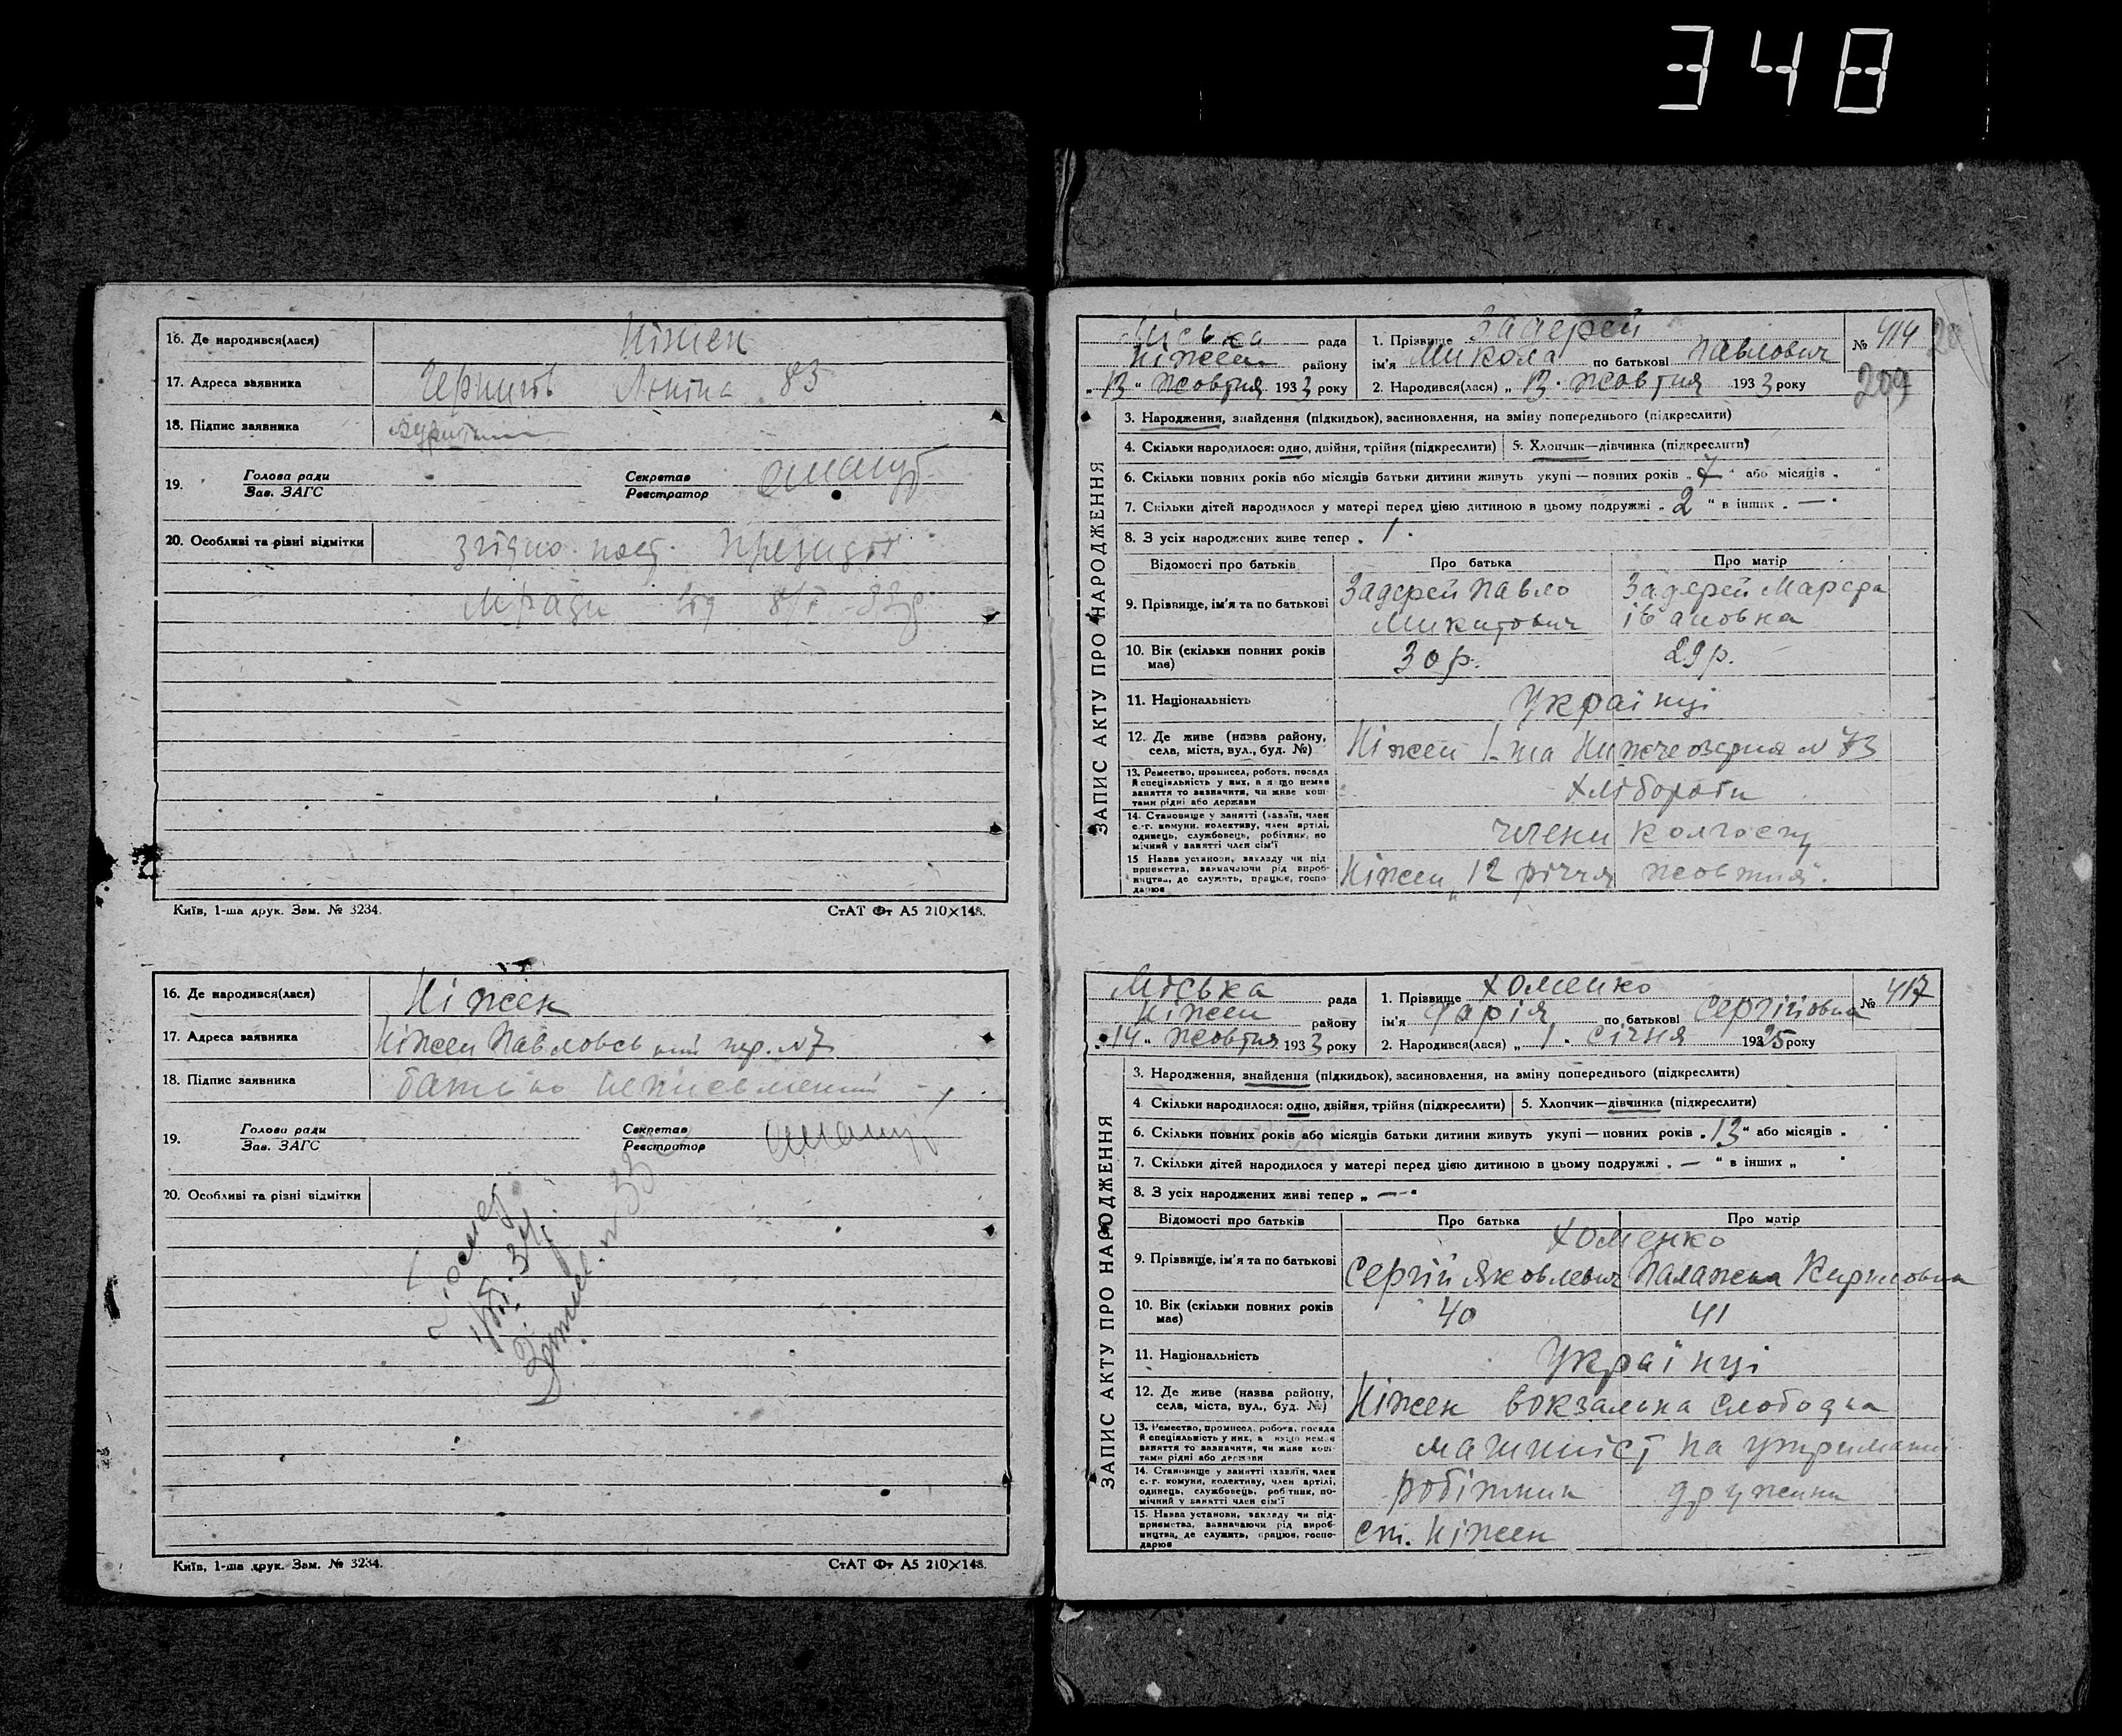 348
16. Де народився(лася) Ніжен
17. Адреса заявника Чернигів Леніна 83
18. Підпис заявника
19. Голова ради Секретар
Зав. ЗАГС Реєстратор
20. Особливі та різні відмітки згідно пост. Президії
М/ради від
Київ, 1-ша друк. Зам. № 3234. СтАТ Фт А5 210×148.
16. Де народився(лася) Ніжен
17. Адреса заявника Ніжен Павловський пер. № 7
18. Підпис заявника батько неписьменний
19. Голова ради Секретар
Зав. ЗАГС Реєстратор
20. Особливі та різні відмітки
Київ, 1-ша друк. Зам. № 3234. СтАТ Фт А5 210×148.
ЗАПИС АКТУ ПРО НАРОДЖЕННЯ
Міська рада 1. Прізвище Задерей № 414
Ніжен району ім'я Микола по батькові Павлович
„13" жовтня 1933 року 2. Народився(лася) „13. жовтня 1933 року 209
3. Народження, знайдення (підкидьок), засиновлення, на зміну попереднього (підкреслити)
4. Скільки народилося: одно, двійня, трійня (підкреслити) 5. Хлопчик—дівчинка (підкреслити)
6. Скільки повних років або місяців батьки дитини живуть укупі — повних років „7" або місяців „ "
7. Скільки дітей народилося у матері перед цією дитиною в цьому подружжі „2" в інших „—"
8. З усіх народжених живе тепер „1"
Відомості про батьків Про батька Про матір
9. Прізвище, ім'я та по батькові Задерей Павло Задерей Марфа
Микитович Івановна
10. Вік (скільки повних років 30 р. 29 р.
має)
11. Національність Українці
12. Де живе (назва району, Ніжен 1-ша Нижчеозерня № 73
села, міста, вул., буд. №)
13. Ремество, промисел, робота, посада
й спеціяльність у них, а якщо немає хлібороби
заняття то зазначити, чи живе кош-
тами рідні або держави
14. Становище у занятті (хазяїн, член
с.-г. комуни, колективу, член артілі, члени колгоспу
одинець, службовець, робітник, по-
мічний у занятті член сім'ї
15 Назва установи, закладу чи під-
приємства, зазначаючи рід вироб- Ніжен „12 річчя жовтня"
ництва, де служить, працює, госпо-
дарює
ЗАПИС АКТУ ПРО НАРОДЖЕННЯ
Міська рада 1. Прізвище Хоменко № 417
Ніжен району ім'я Дарія по батькові Сергіївна
„14" жовтня 1933 року 2. Народився(лася) „1. січня 1925 року
3. Народження, знайдення (підкидьок), засиновлення, на зміну попереднього (підкреслити)
4 Скільки народилося: одно, двійня, трійня (підкреслити) 5. Хлопчик—дівчинка (підкреслити)
6. Скільки повних років або місяців батьки дитини живуть укупі — повних років „13" або місяців „ "
7. Скільки дітей народилося у матері перед цією дитиною в цьому подружжі „—" в інших „ "
8. З усіх народжених живі тепер „—"
Відомості про батьків Про батька Про матір
Хоменко
9. Прізвище, ім'я та по батькові Сергій Яковлевич Палажка Кириловна
10. Вік (скільки повних років 40 41
має)
11. Національність Українці
12. Де живе (назва району, Ніжен вокзальна слободка
села, міста, вул., буд. №)
13. Ремество, промисел, робота, посада
й спеціяльність у них, а якщо немає машиніст на утриманні
заняття то зазначити, чи живе кош-
тами рідні або держави
14. Становище у занятті (хазяїн, член
с.-г. комуни, колективу, член артілі, робітник дружина
одинець, службовець, робітник, по-
мічний у занятті член сім'ї
15. Назва установи, закладу чи під-
приємства, зазначаючи рід вироб- ст. Ніжен
ництва, де служить, працює, госпо-
дарює